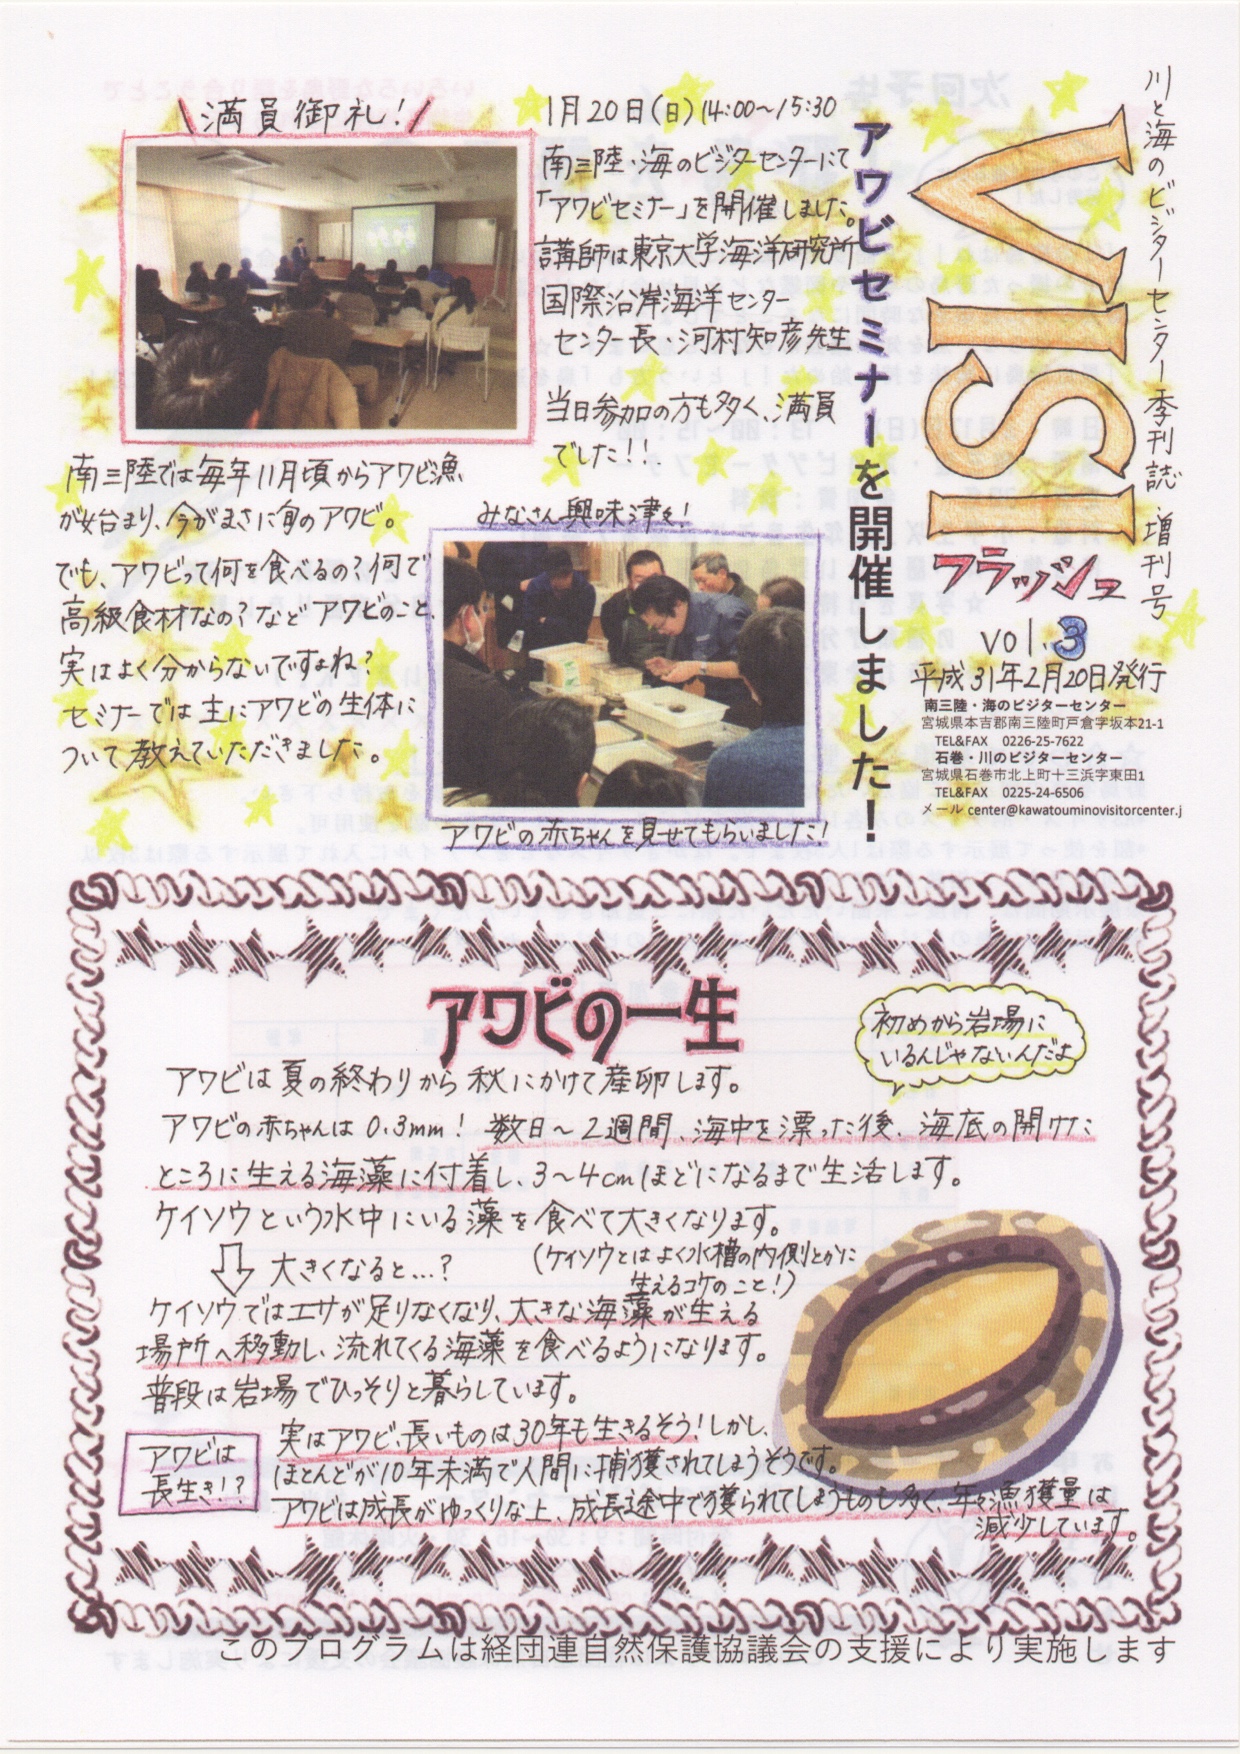 川と海のビジターセンター季刊誌 増刊号
VISI
フラッシュ
vol.3
平成31年2月20日発行
南三陸・海のビジターセンター
宮城県本吉郡南三陸町戸倉字坂本21-1
TEL&FAX 0226-25-7622
石巻・川のビジターセンター
宮城県石巻市北上町十三浜字東田1
TEL&FAX 0225-24-6506
メール center@kawatouminovisitorcenter.j
アワビセミナーを開催しました！
満員御礼！
1月20日(日)14:00〜15:30
南三陸・海のビジターセンターにて
「アワビセミナー」を開催しました。
講師は東京大学海洋研究所
国際沿岸海洋センター
センター長・河村知彦先生
当日参加の方も多く、満員
でした!!
南三陸では毎年11月頃からアワビ漁
が始まり、今がまさに旬のアワビ。
でも、アワビって何を食べるの？何で
高級食材なの？などアワビのこと、
実はよく分からないですよね？
セミナーでは主にアワビの生体に
ついて教えていただきました。
みなさん興味津々！
アワビの赤ちゃんを見せてもらいました！
アワビの一生
初めから岩場に
いるんじゃないんだよ
アワビは夏の終わりから秋にかけて産卵します。
アワビの赤ちゃんは0.3mm！数日〜2週間、海中を漂った後、海底の開けた
ところに生える海藻に付着し、3〜4cmほどになるまで生活します。
ケイソウという水中にいる藻を食べて大きくなります。
(ケイソウとはよく水槽の内側とかに
生えるコケのこと！)
大きくなると…？
ケイソウではエサが足りなくなり、大きな海藻が生える
場所へ移動し、流れてくる海藻を食べるようになります。
普段は岩場でひっそりと暮らしています。
アワビは
長生き!？
実はアワビ、長いものは30年も生きるそう！しかし、
ほとんどが10年未満で人間に捕獲されてしまうそうです。
アワビは成長がゆっくりな上、成長途中で獲られてしまうものも多く、年々漁獲量は
減少しています。
このプログラムは経団連自然保護協議会の支援により実施します